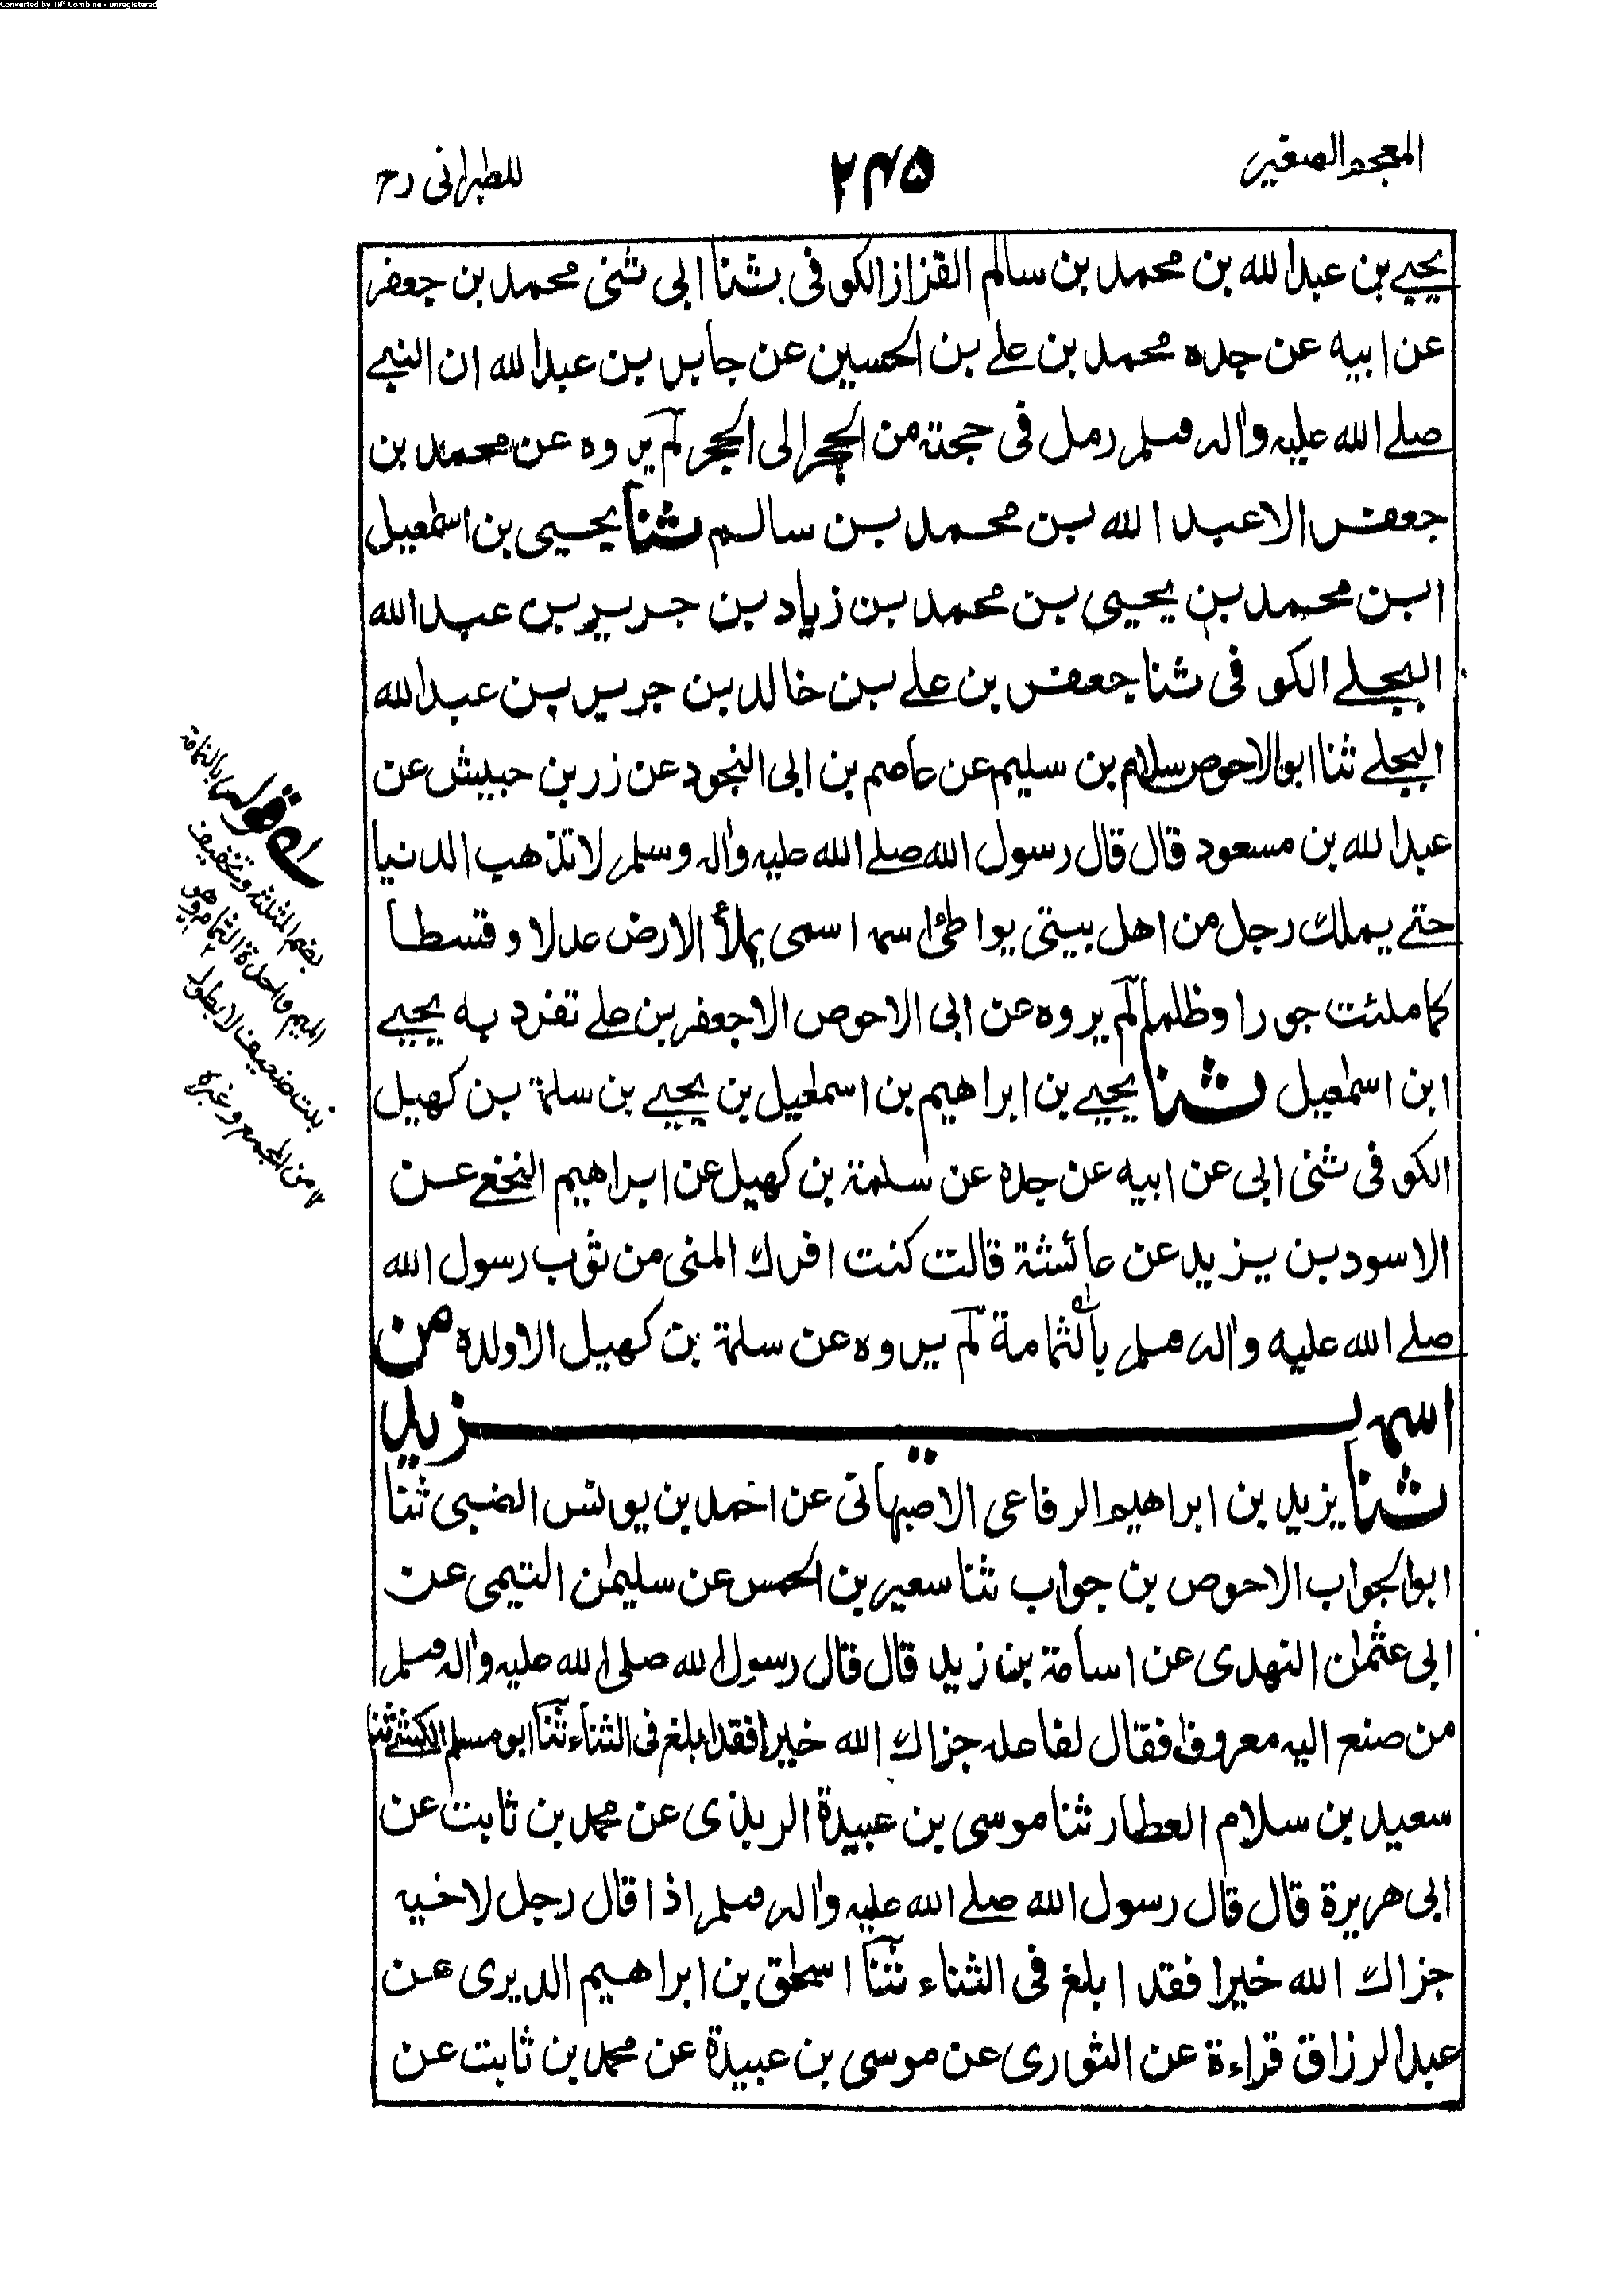 Converted by Tiff Combine - unregistered
المعجم الصغير
٢٤٥
للطبرانی رح
یحیے بن عبد الله بن محمد بن سالم القزاز الکوفی ثنا ابی ثنی محمد بن جعفر
عن ابیه عن جده محمد بن علے بن الحسین عن جابر بن عبد الله ان النبے
صلے الله علیه واٰله وسلم رمل فی حجته من الحجر الی الحجر لم یروه عن محمد بن
جعفر الا عبد الله بن محمد بن سالم ثنا یحیی بن اسمٰعیل
ابن محمد بن یحیی بن محمد بن زیاد بن جریر بن عبد الله
البجلے الکوفی ثنا جعفر بن علے بن خالد بن جریر بن عبد الله
البجلے ثنا ابوالاحوص سلام بن سلیم عن عاصم بن ابی النجود عن زر بن حبیش عن
عبد الله بن مسعود قال قال رسول الله صلے الله علیه واٰله وسلم لا تذهب الدنیا
حتے یملك رجل من اهل بیتی یواطئ اسمه اسمی یملأ الارض عدلا وقسطا
کما ملئت جورا وظلما لم یروه عن ابی الاحوص الا جعفر بن علے تفرد به یحیے
ابن اسمٰعیل ثنا یحیے بن ابراهیم بن اسمٰعیل بن یحیے بن سلمة بن کهیل
الکوفی ثنی ابی عن ابیه عن جده عن سلمة بن کهیل عن ابراهیم النخعے عن
الاسود بن یزید عن عائشة قالت کنت افرك المنی من ثوب رسول الله
صلے الله علیه واٰله وسلم بالثمامة لم یروه عن سلمة بن کهیل الا ولده من
اسمه یـــــزید
ثنا یزید بن ابراهیم الرفاعی الاصبهانی عن احمد بن یونس الضبی ثنا
ابو الجواب الاحوص بن جواب ثنا سعیر بن الخمس عن سلیمٰن التیمی عن
ابی عثمٰن النهدی عن اسامة بن زید قال قال رسول الله صلی الله علیه واٰله وسلم
من صنع الیه معروفا فقال لفاعله جزاك الله خیرا فقد ابلغ فی الثناء ثنا ابو مسلم الکشے ثنا
سعید بن سلام العطار ثنا موسی بن عبیدة الربذی عن محمد بن ثابت عن
ابی هریرة قال قال رسول الله صلے الله علیه واٰله وسلم اذا قال رجل لاخیه
جزاك الله خیرا فقد ابلغ فی الثناء ثنا اسحٰق بن ابراهیم الدبری عن
عبد الرزاق قراءة عن الثوری عن موسی بن عبیدة عن محمد بن ثابت عن
قولها بالثمامة
بضم المثلثة وتخفیف
المیم واحدة الثمام وهو
نبت ضعیف لا یطول
١٢ من المجمع وغیره